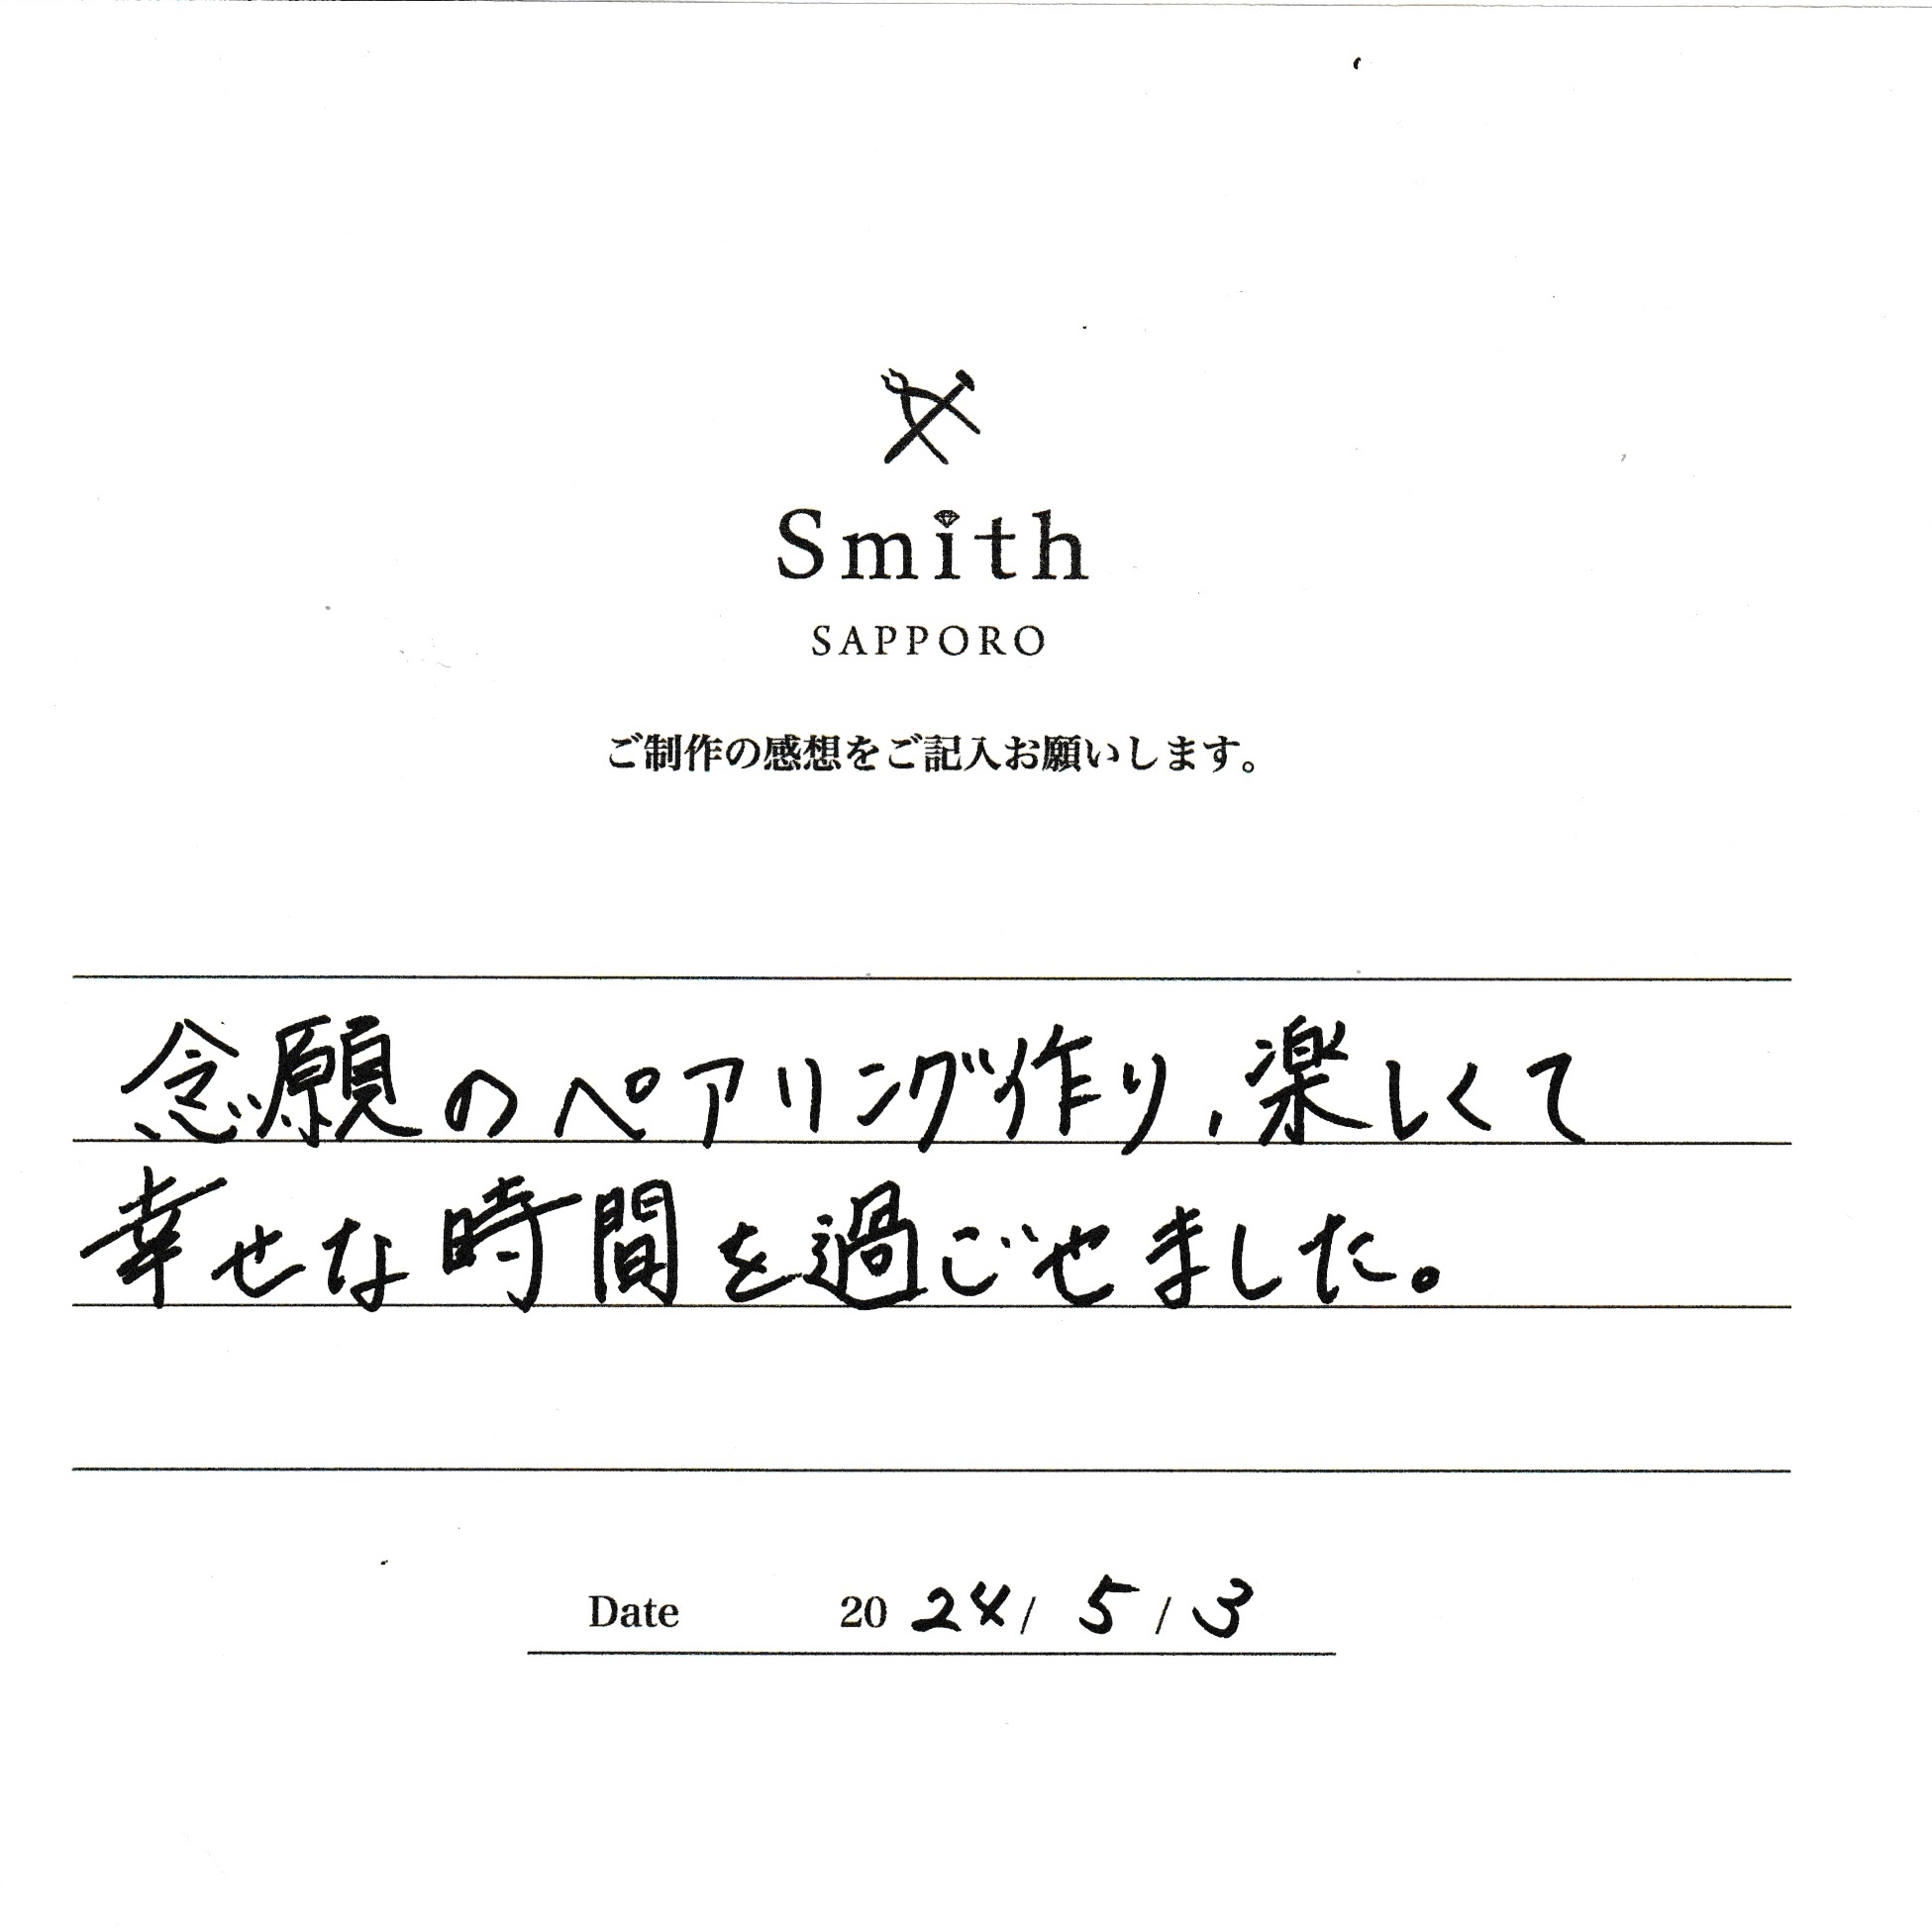 Smith
SAPPORO
ご制作の感想をご記入お願いします。
念願のペアリング作り、楽しくて
幸せな時間を過ごせました。
Date 2024/5/3